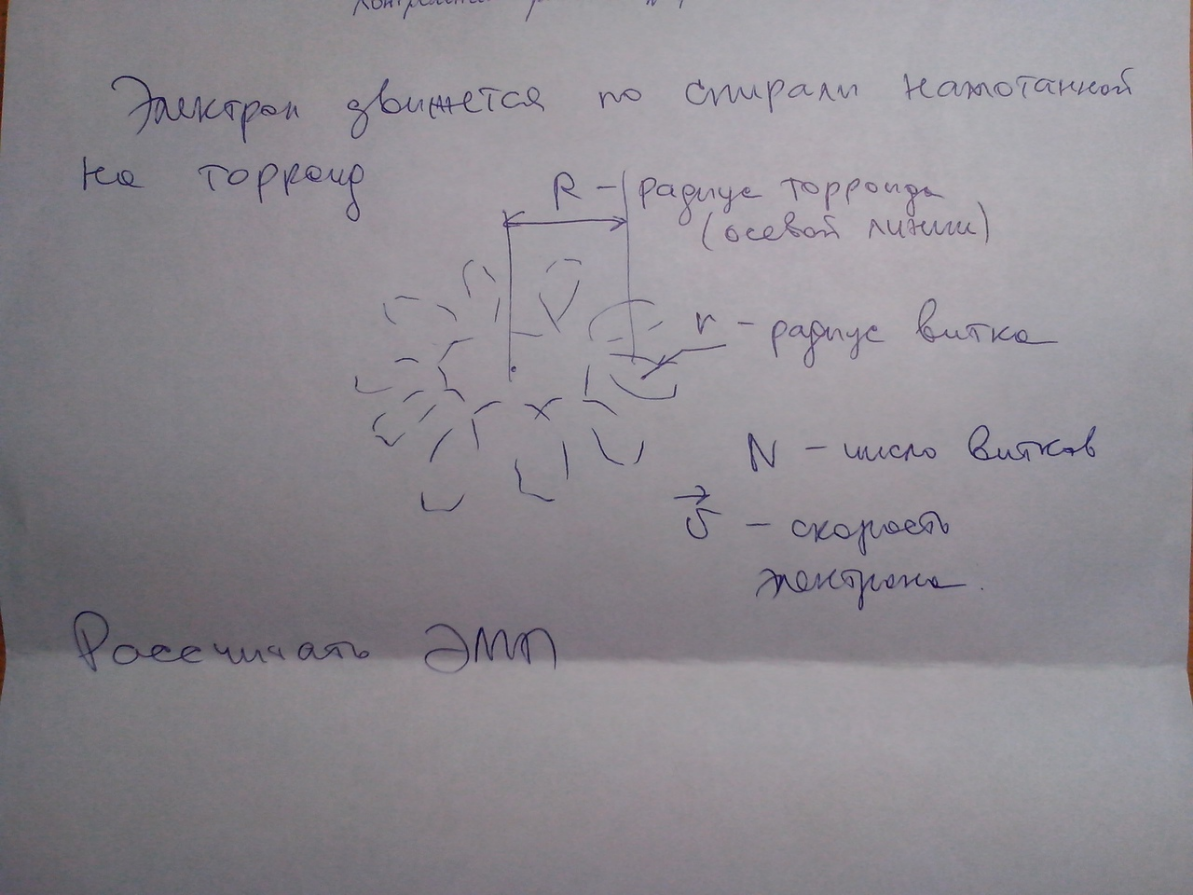 Электрон движется по спирали намотанной
на торроид
R - радиус торроида
(осевой линии)
r - радиус витка
N - число витков
v - скорость
электрона.
Рассчитать ЭМП